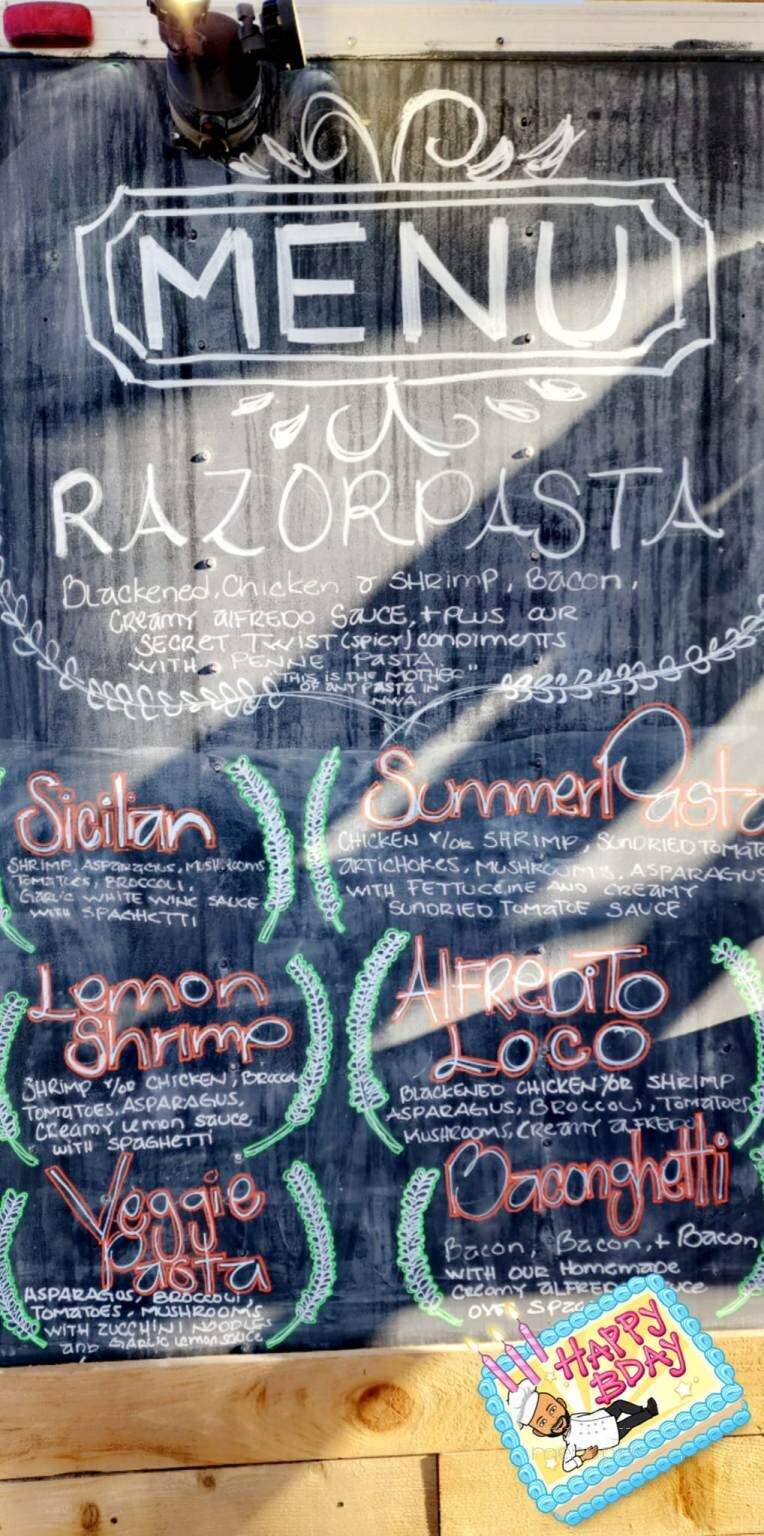 MENU
RAZORPASTA
Blackened, Chicken & SHRIMP, Bacon,
Creamy alFREDO SAUCE, + PLUS OUR
SECRET TWIST (SPICY) CONDIMENTS
WITH PENNE PASTA
"THIS IS THE MOTHER"
OF ANY PASTA IN
NWA.
Sicilian
SHRIMP, ASPARAGUS, MUSHROOMS
TOMATOES, BROCCOLI,
GARLIC WHITE WINE SAUCE
WITH SPAGHETTI
Summer Pasta
CHICKEN Y/OR SHRIMP, SUNDRIED TOMATO
ARTICHOKES, MUSHROOMS, ASPARAGUS
WITH FETTUCCINE AND CREAMY
SUNDRIED TOMATOE SAUCE
Lemon
Shrimp
SHRIMP Y/OR CHICKEN, BROCCOLI
TOMATOES, ASPARAGUS,
CREAMY Lemon SAUCE
WITH SPAGHETTI
AlFREDiTo
Loco
BLACKENED CHICKEN Y/OR SHRIMP
ASPARAGUS, BROCCOLI, TOMATOES
MUSHROOMS, CREAMY alFREDO
Veggie
Pasta
ASPARAGUS, BROCCOLI
TOMATOES, MUSHROOMS
WITH ZUCCHINI NOODLES
and GARLIC Lemon SAUCE
Baconghetti
Bacon, Bacon, + Bacon
WITH OUR Homemade
Creamy alFREDO
OVER
HAPPY
BDAY